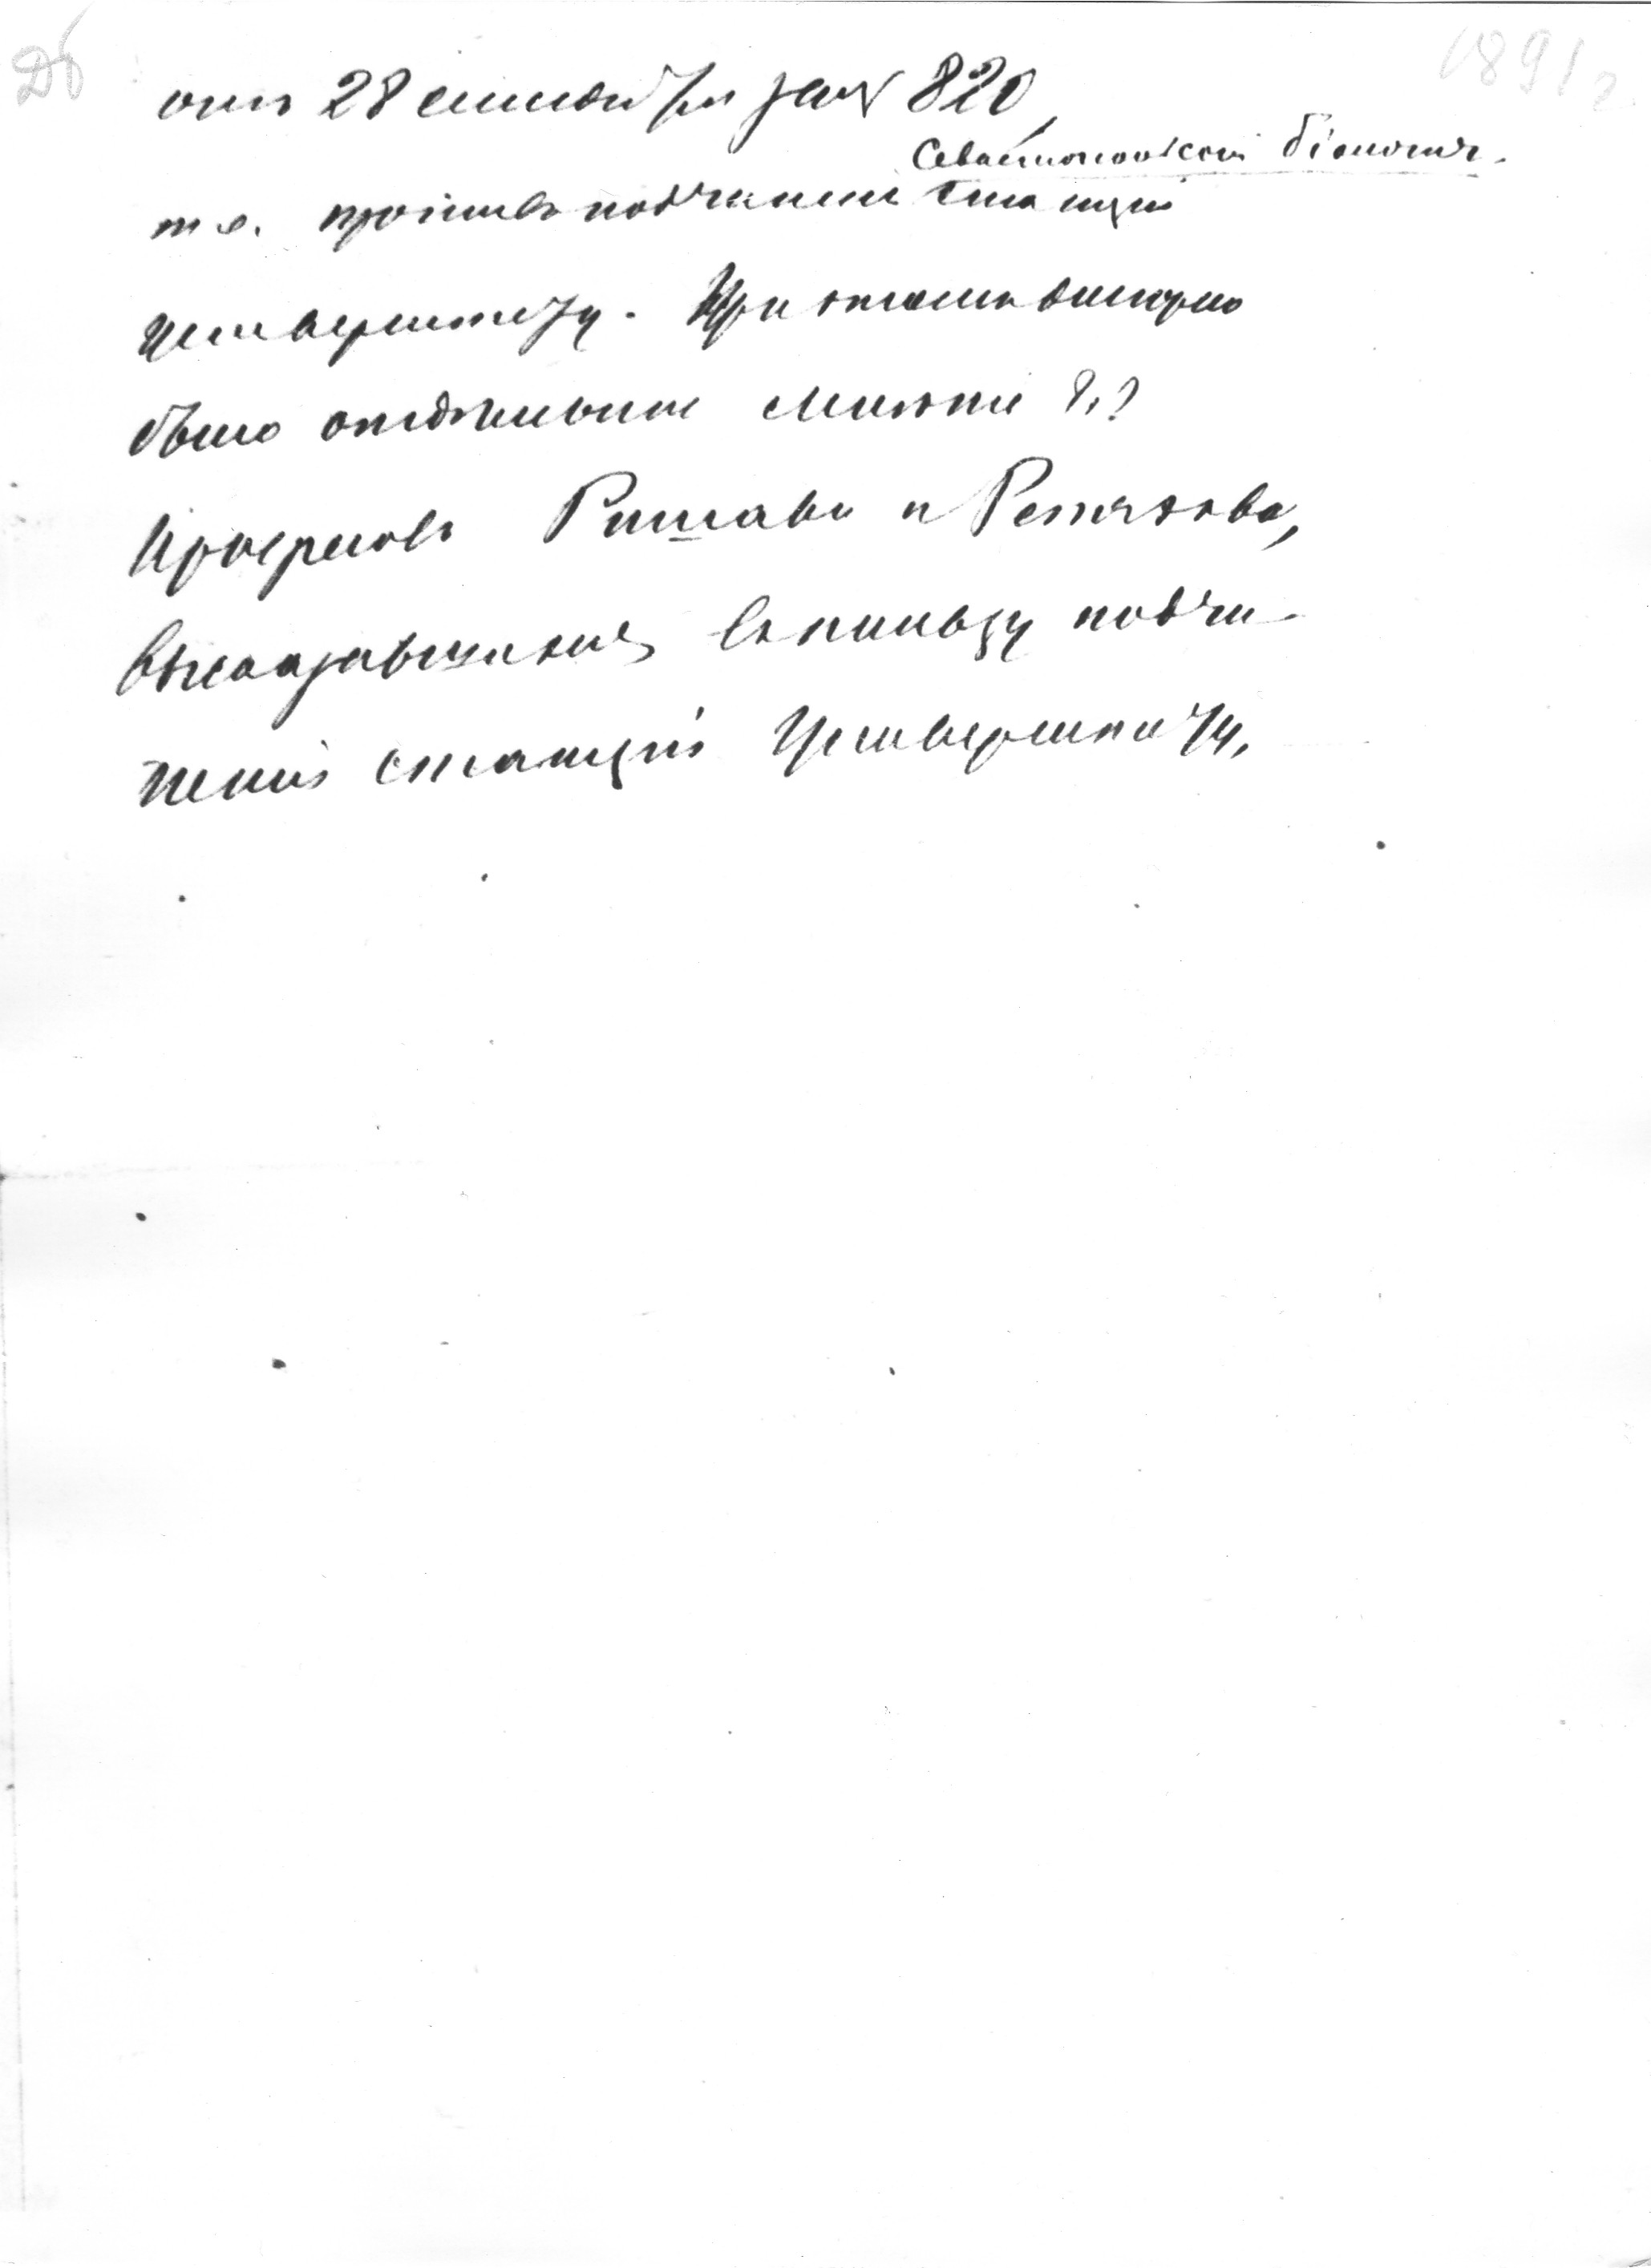 Дб
1891 г
отъ 28 сентября за № 820,
Севастопольской біологич.
т. е. противъ подчиненія станціи
Университету. При этомъ
было отдѣльное мнѣніе г.г.
Профессоровъ Ришави и Репяхова,
высказавшихся въ пользу подчи-
ненія станціи Университету.